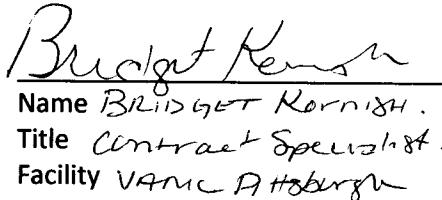 Bridget Kornish
Name BRIDGET KORNISH.
Title Contract Specialist.
Facility VAMC Pittsburgh